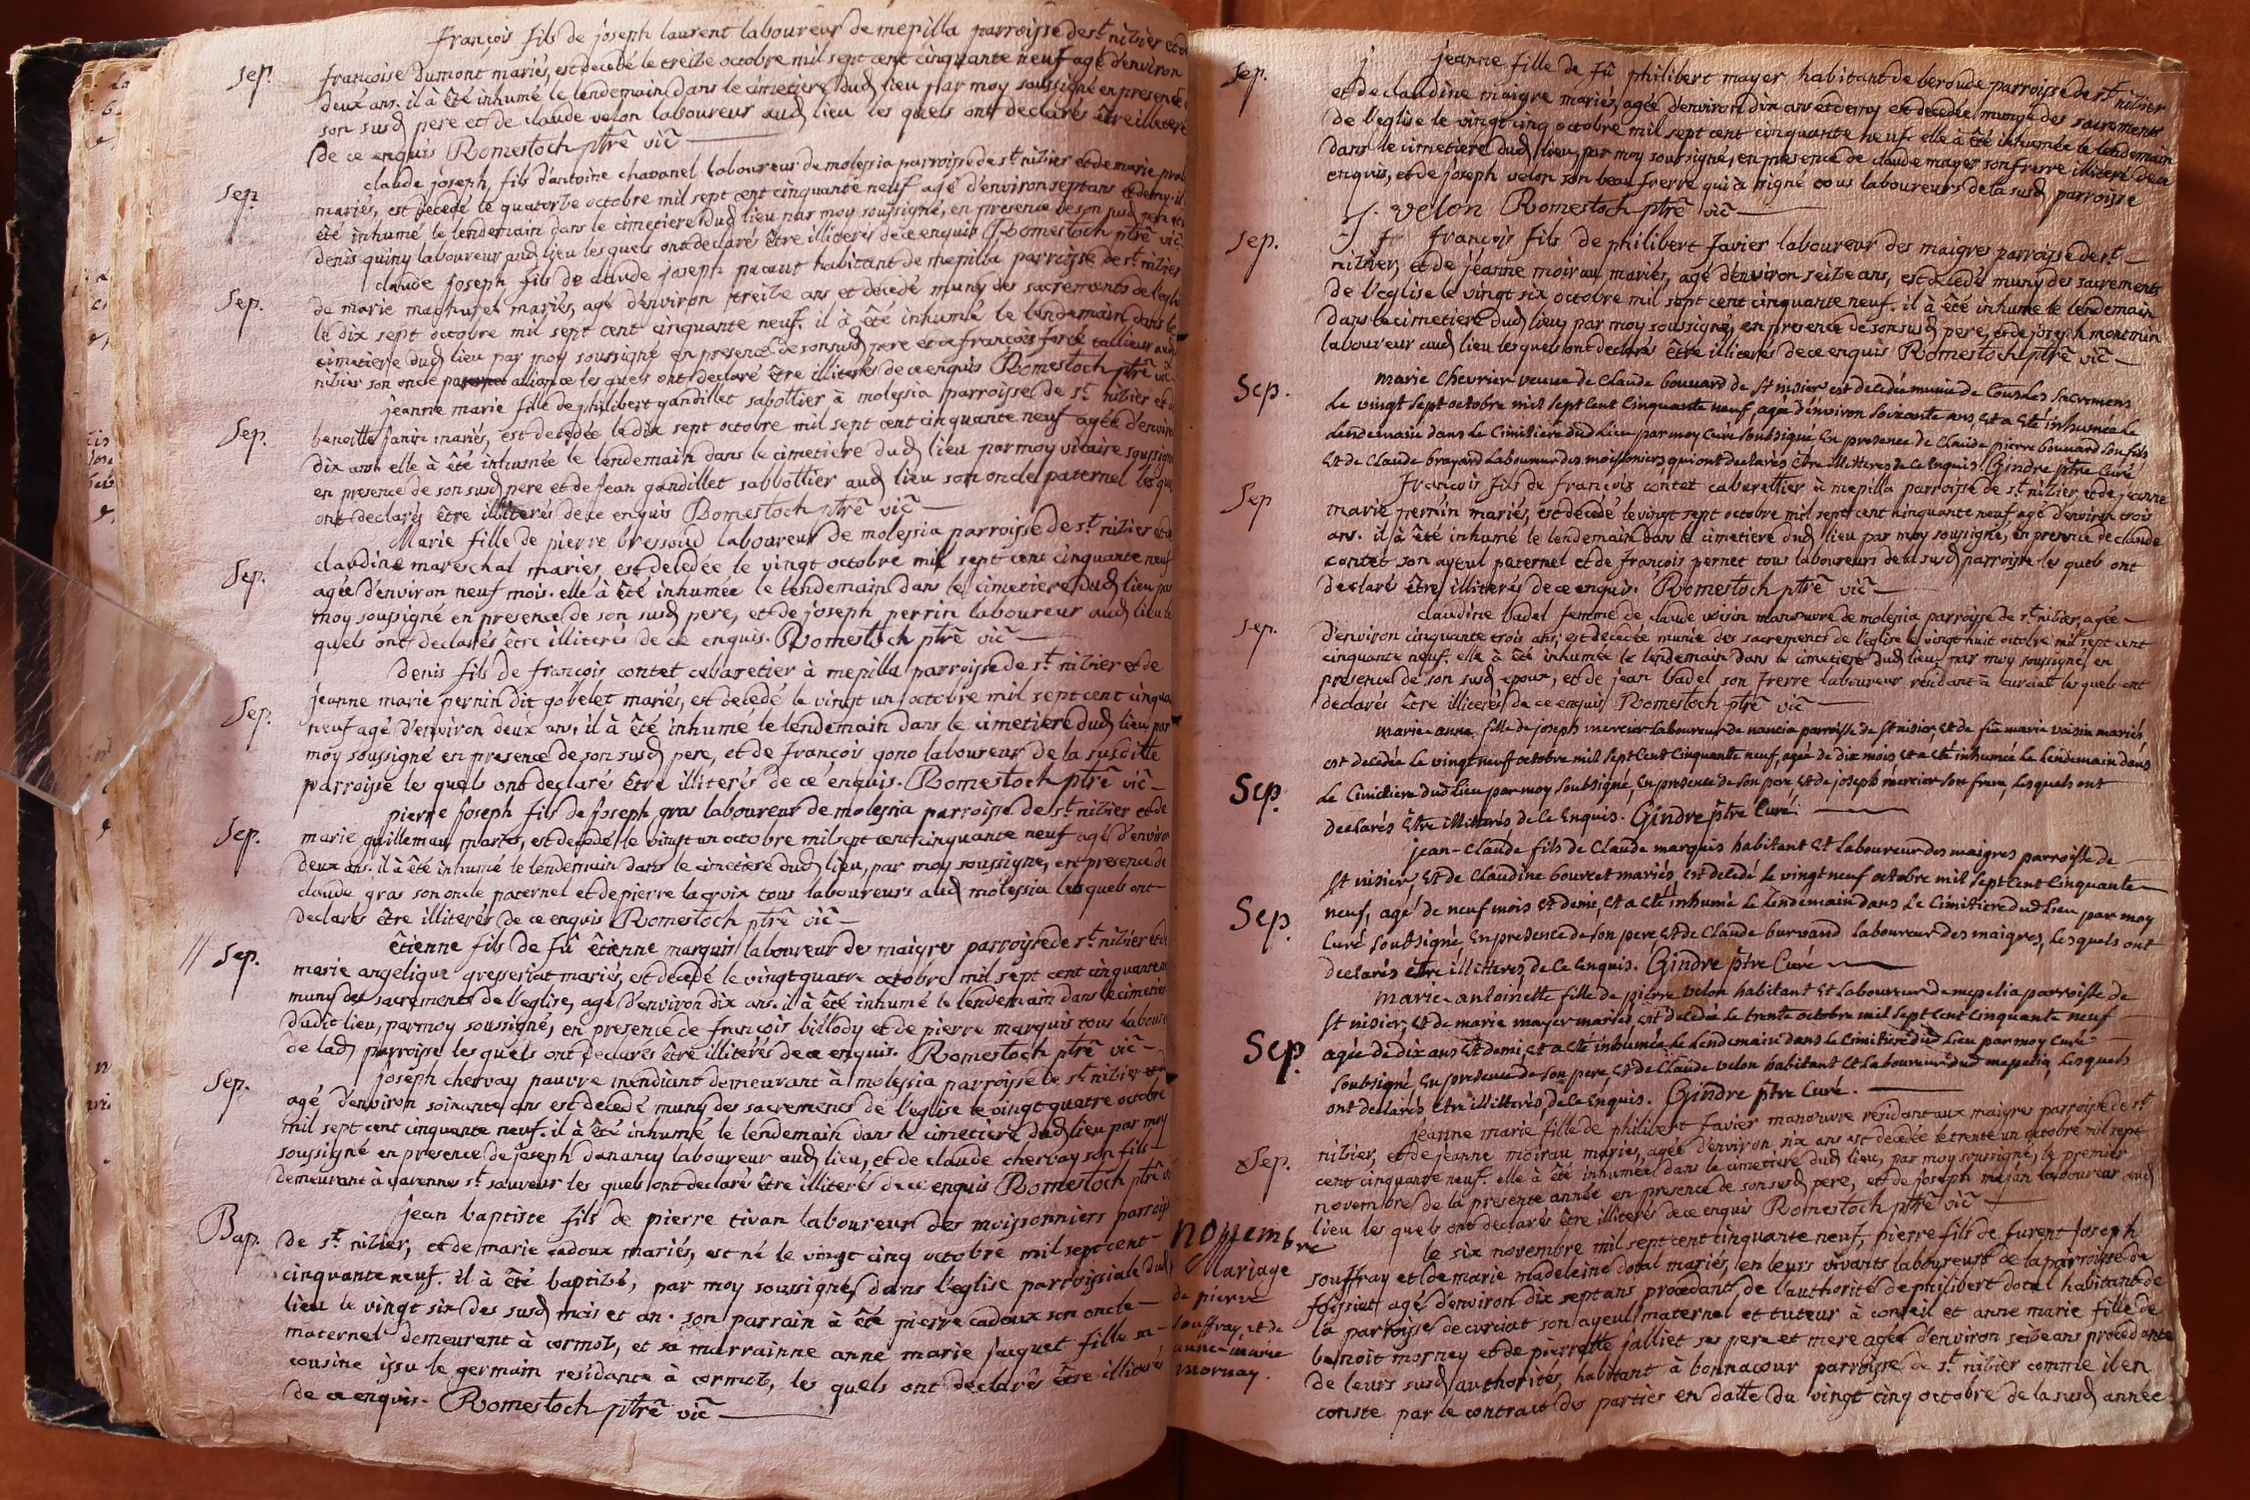 françois fils de joseph laurent laboureur de mepilla parroisse de st nizier et de
Sep. françoise dumont mariés, est decedé le treize octobre mil sept cent cinquante neuf agé d'environ
deux ans. il à été inhumé le lendemain dans le cimetiere dud lieu par moy soussigné en presence de
son susd pere et de claude velon laboureur aud lieu les quels ont declarés être illiterés
de ce enquis Romestoch ptrê vic̃
claude joseph, fils d'antoine chavanel laboureur de molessia parroisse de st nizier et de marie
Sep mariés, est decedé le quatorze octobre mil sept cent cinquante neuf agé d'environ sept ans et demy. il
été inhumé le lendemain dans le cimetiere dud lieu par moy soussigné, en presence de son susd pere et de
denis quiny laboureur aud lieu les quels ont declarés être illiterés de ce enquis Romestoch ptrê vic̃
claude joseph fils de claude joseph pacaut habitant de mepilla parroisse de st nizier
Sep. de marie magnufet mariés, agé d'environ treize ans et decedé muny des sacrements de l'eglise
le dix sept octobre mil sept cent cinquante neuf. il à été inhumé le lendemain dans le
cimetiere dud lieu par moy soussigné en presence de son susd pere et de françois forêt tailleur aud
nizier son oncle par alliance les quels ont declaré être illiterés de ce enquis Romestoch ptrê vic̃
jeanne marie fille de philibert gandillet sabottier à molessia parroisse de st nizier et de
Sep. benoitte janin mariés, est decedée le dix sept octobre mil sept cent cinquante neuf agée d'environ
dix ans. elle à été inhumée le lendemain dans le cimetiere dud lieu par moy vicaire soussigné
en presence de son susd pere et de jean gandillet sabbottier aud lieu son oncle paternel les quels
ont declarés être illiterés de ce enquis Romestoch ptrê vic̃
Marie fille de pierre bressoud laboureur de molessia parroisse de st nizier et de
Sep. claudine mareschal mariés, est decedée le vingt octobre mil sept cent cinquante neuf
agée d'environ neuf mois. elle à été inhumée le lendemain dans le cimetiere dud lieu par
moy soussigné en presence de son susd pere, et de joseph perrin laboureur aud lieu les
quels ont declarés être illiterés de ce enquis. Romestoch ptrê vic̃
denis fils de françois contet cabaretier à mepilla parroisse de st nizier et de
Sep. jeanne marie pernin dit gobelet mariés, est decedé le vingt un octobre mil sept cent cinquante
neuf agé d'environ deux ans, il à été inhumé le lendemain dans le cimetiere dud lieu par
moy soussigné en presence de son susd pere, et de françois gono laboureur de la susditte
parroisse les quels ont declarés être illiterés de ce enquis. Romestoch ptrê vic̃
pierre joseph fils de joseph gras laboureur de molessia parroisse de st nizier et de
Sep. marie guilleman mariés, est decedé le vingt un octobre mil sept cent cinquante neuf agé d'environ
deux ans. il à été inhumé le lendemain dans le cimetiere dud lieu, par moy soussigné, en presence de
claude gras son oncle paternel et de pierre lacroix tous laboureurs aud molessia les quels ont
declarés être illiterés de ce enquis Romestoch ptrê vic̃
étienne fils de fû étienne marquis laboureur des maigres parroisse de st nizier et de
// Sep. marie angelique gresseriat mariés, est decedé le vingt quatre octobre mil sept cent cinquante neuf
muny des sacrements de l'eglise, agé d'environ dix ans. il à été inhumé le lendemain dans le cimetiere
dudit lieu, par moy soussigné, en presence de françois billody et de pierre marquis tous laboureurs
de lad parroisse les quels ont declarés être illiterés de ce enquis. Romestoch ptrê vic̃
Sep. joseph chervay pauvre mendiant demeurant à molessia parroisse de st nizier
agé d'environ soixante ans est decedé muny des sacrements de l'eglise le vingt quatre octobre
mil sept cent cinquante neuf. il à été inhumé le lendemain dans le cimetiere dud lieu par moy
soussigné en presence de joseph danancy laboureur aud lieu, et de claude chervay son fils
demeurant à varennes st sauveur les quels ont declaré être illiterés de ce enquis Romestoch ptrê vic̃
jean baptiste fils de pierre tivan laboureur des moissonniers parroisse
Bap. de st nizier, et de marie cadoux mariés, est né le vingt cinq octobre mil sept cent
cinquante neuf. il à été baptisé, par moy soussigné, dans l'eglise parroissiale dud
lieu le vingt six des susd mois et an. son parrain à été pierre cadoux son oncle
maternel demeurant à cormoz, et sa marrainne anne marie jacquet fille sa
cousine issu le germain residante à cormoz, les quels ont declarés être illiterés
de ce enquis. Romestoch ptrê vic̃
Sep. jeanne fille de fû philibert mayer habitant de beroude parroisse de st nizier
et de claudine maigre mariés, agée d'environ dix ans et demy est decedée munye des sacrements
de l'eglise le vingt cinq octobre mil sept cent cinquante neuf. elle à été inhumée le lendemain
dans le cimetiere dud lieu, par moy soussigné, en presence de claude mayer son frerre illiteré de ce
enquis, et de joseph velon son beau frerre qui à signé tous laboureurs de la susd parroisse
J. velon Romestoch ptrê vic̃
Sep. françois fils de philibert favier laboureur des maigres parroisse de st
nizier, et de jeanne moirau mariés, agé d'environ seize ans, est decedé muny des sacrements
de l'eglise le vingt six octobre mil sept cent cinquante neuf. il à été inhumé le lendemain
dans le cimetiere dud lieu, par moy soussigné, en presence de son susd pere, et de joseph montmin
laboureur aud lieu les quels ont declarés être illiterés de ce enquis Romestoch ptrê vic̃
Sep. marie Chevrier veuve de Claude bouvard de St nisier est decedée munie de tous les Sacremens
Le vingt Sept octobre mil Sept Cent Cinquante neuf, agée d'environ Soixante ans, et a eté inhumée Le
Lendemain dans Le Cimitiere dud Lieu par moy Curé Soubsigné En presence de Claude pierre bouvard Son fils
Et de Claude brayard Laboureur des moissoniers qui ont declarés être illitteres de Ce Enquis Gindre ptre Curé
françois fils de françois contet cabarettier à mepilla parroisse de st nizier, et de jeanne
Sep marie pernin mariés, est decedé le vingt sept octobre mil sept cent cinquante neuf agé d'environ trois
ans. il à été inhumé le lendemain dans le cimetiere dud lieu par moy soussigné, en presence de claude
contet son ayeul paternel et de françois pernet tous laboureurs de la susd parroisse les quels ont
declaré être illiterés de ce enquis. Romestoch ptrê vic̃
claudine badel femme de claude voisin manœuvre de molessia parroisse de st nizier, agée
Sep. d'environ cinquante trois ans, est decedée munie des sacrements de l'eglise le vingt huit octobre mil sept cent
cinquante neuf. elle à été inhumée le lendemain dans le cimetiere dud lieu, par moy soussigné, en
presence de son susd epoux, et de jean badel son frerre laboureur residant à curciat les quels ont
declarés être illiterés de ce enquis Romestoch ptrê vic̃
marie-anne fille de joseph mercier Laboureur de nancia parroisse de St nisier, Et de fûe marie voisin mariés
est decedée Le vingt neuf octobre mil Sept Cent Cinquante neuf, agée de dix mois et a eté inhumée Le Lendemain dans
Sep. Le Cimitiere dud Lieu par moy Soubsigné, En presence de Son pere Et de joseph mercier Son frere, Lesquels ont
declarés Etre illitterés de Ce Enquis. Gindre ptre Curé.
jean-Claude fils de Claude marquis habitant Et Laboureur des maigres parroisse de
St nisier, Et de Claudine bouvet mariés, est decedé Le vingt neuf octobre mil Sept Cent Cinquante
Sep. neuf, agé de neuf mois Et demi, Et a eté inhumé Le Lendemain dans Le Cimitiere dud Lieu par moy
Curé Soubsigné, En presence de Son pere Et de Claude burvand laboureur des maigres, Lesquels ont
declarés être illitteres, de Ce Enquis. Gindre ptre Curé
marie-antoinette fille de pierre velon habitant Et Laboureur de mepelia parroisse de
St nisier, Et de marie mayer mariés, est decedée Le trente octobre mil Sept Cent Cinquante neuf
Sep. agée de dix ans Et demi, et a eté inhumée Le Lendemain dans Le Cimitiere dud Lieu par moy Curé
Soubsigné, En presence de Son pere, Et de Claude velon habitant Et Laboureur dud mepelia, Lesquels
ont declarés Etre illitterés, de Ce Enquis. Gindre ptre Curé.
jeanne marie fille de philibert favier manœuvre residant aux maigres parroisse de st
Sep. nizier, et de jeanne moirau mariés, agée d'environ six ans est decedée le trente un octobre mil sept
cent cinquante neuf. elle à été inhumée dans le cimetiere dud lieu, par moy soussigné, le premier
novembre de la presente année en presence de son susd pere, et de joseph mejan laboureur aud
lieu les quels ont declarés être illiterés de ce enquis Romestoch ptrê vic̃
novembre
Mariage
de pierre
souffray, et de
anne-marie
mornay.
le six novembre mil sept cent cinquante neuf, pierre fils de furent joseph
souffray et de marie madeleine dotal mariés, en leurs vivants laboureurs de la parroisse de
foissiat, agé d'environ dix sept ans procedant, de l'authorité de philibert dotal habitant de
la parroisse de curciat son ayeul maternel et tuteur à conseil et anne marie fille de
benoit morney et de pierrette falliet ses pere et mere agée d'environ seize ans procedante
de leurs susd authorités, habitant à bonnacour parroisse de st nizier comme il en
conste par le contrait des parties en datte du vingt cinq octobre de la susd année